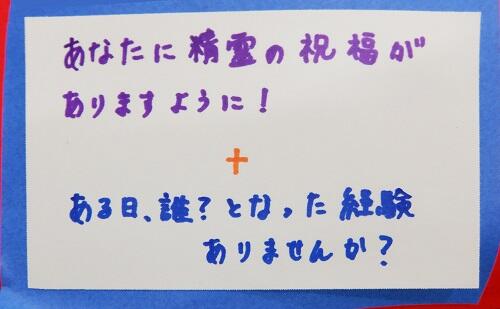 あなたに精霊の祝福が
ありますように！
+
ある日、誰？となった経験
ありませんか？